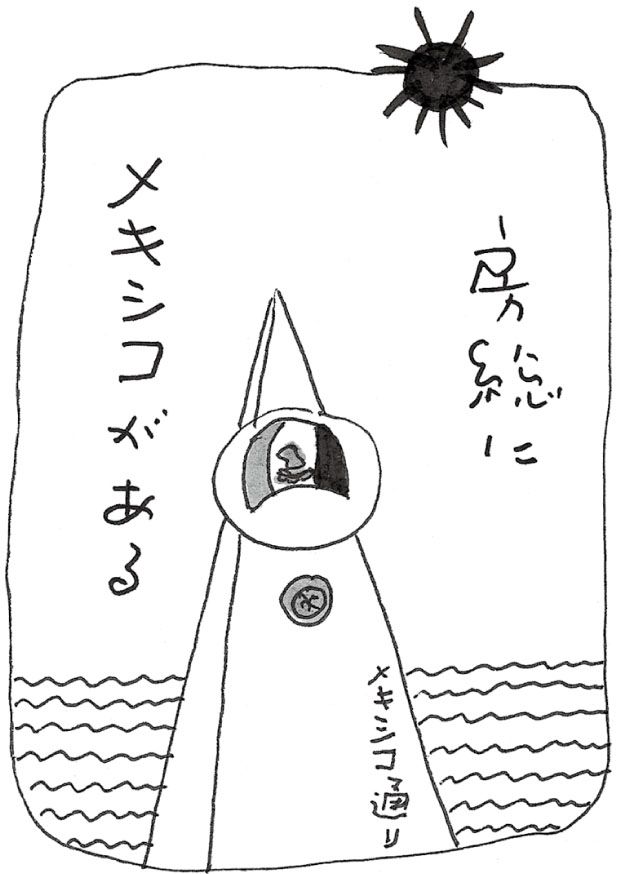 房総に
メキシコがある
メキシコ通り